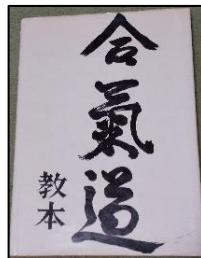 合氣道
教本